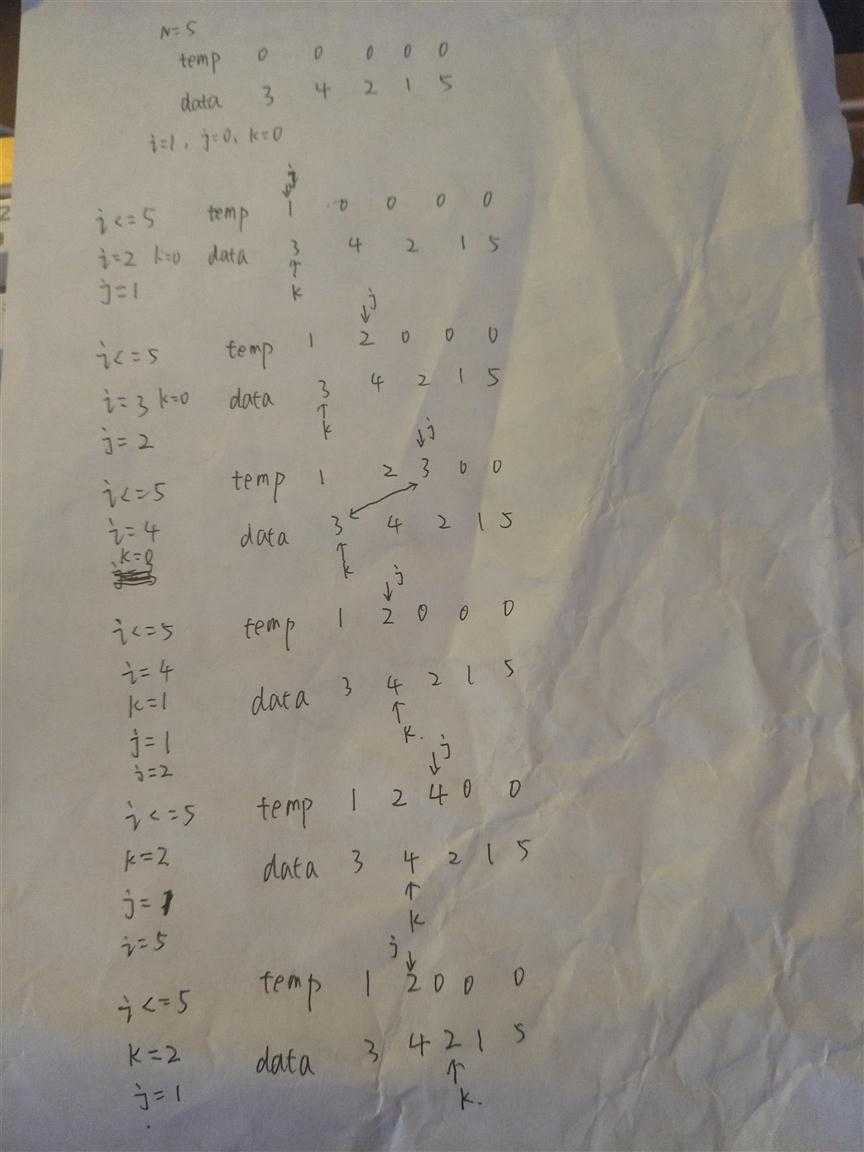 N=5
temp 0 0 0 0 0
data 3 4 2 1 5
i=1, j=0, k=0
j
i<=5 temp 1 0 0 0 0
i=2 k=0 data 3 4 2 1 5
j=1 k
j
i<=5 temp 1 2 0 0 0
i=3 k=0 data 3 4 2 1 5
j=2 k
j
i<=5 temp 1 2 3 0 0
i=4 data 3 4 2 1 5
k=0
k
j
i<=5 temp 1 2 0 0 0
i=4
k=1 data 3 4 2 1 5
j=1 k.
i=2
j
i<=5 temp 1 2 4 0 0
k=2 data 3 4 2 1 5
j=1
k
i=5
j
i<=5 temp 1 2 0 0 0
k=2 data 3 4 2 1 5
j=1 k.